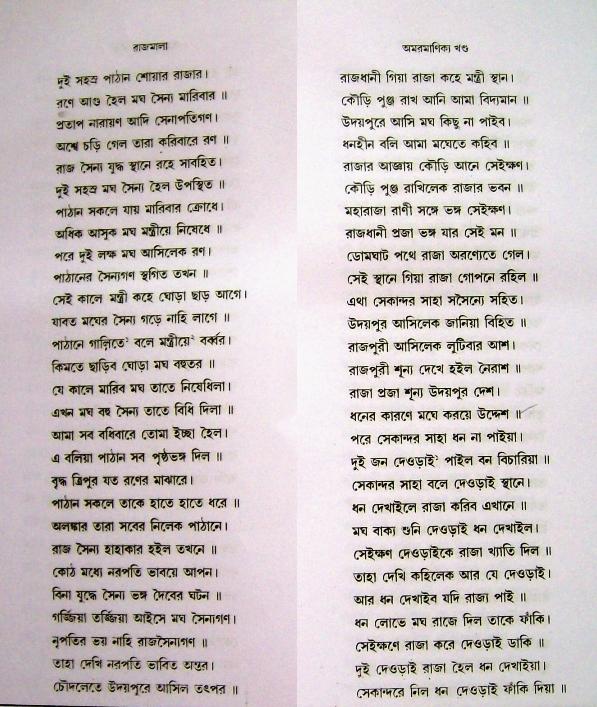 রাজমালা
দুই সহস্র পাঠান শোয়ার রাজার।
রণে আগু হৈল মঘ সৈন্য মারিবার ॥
প্রতাপ নারায়ণ আদি সেনাপতিগণ।
অশ্বে চড়ি গেল তারা করিবারে রণ ॥
রাজ সৈন্য যুদ্ধ স্থানে রহে সাবহিত।
দুই সহস্র মঘ সৈন্য হৈল উপস্থিত ॥
পাঠান সকলে যায় মারিবার ক্রোধে।
অধিক আসুক মঘ মন্ত্রীয়ে নিষেধে ॥
পরে দুই লক্ষ মঘ আসিলেক রণ।
পাঠানের সৈন্যগণ স্থগিত তখন ॥
সেই কালে মন্ত্রী কহে ঘোড়া ছাড় আগে।
যাবত মঘের সৈন্য গড়ে নাহি লাগে ॥
পাঠানে গালিতে¹ বলে মন্ত্রীয়ে² বর্ব্বর।
কিমতে ছাড়িব ঘোড়া মঘ বহুতর ॥
যে কালে মারিব মঘ তাতে নিষেধিলা।
এখন মঘ বহু সৈন্য তাতে বিধি দিলা ॥
আমা সব বধিবারে তোমা ইচ্ছা হৈল।
এ বলিয়া পাঠান সব পৃষ্ঠভঙ্গ দিল ॥
বৃদ্ধ ত্রিপুর যত রণের মাঝারে।
পাঠান সকলে তাকে হাতে হাতে ধরে ॥
অলঙ্কার তারা সবের নিলেক পাঠানে।
রাজ সৈন্য হাহাকার হইল তখনে ॥
কোঠ মধ্যে নরপতি ভাবয়ে আপন।
বিনা যুদ্ধে সৈন্য ভঙ্গ দৈবের ঘটন ॥
গর্জ্জিয়া তর্জ্জিয়া আইসে মঘ সৈন্যগণ।
নৃপতির ভয় নাহি রাজসৈন্যগণ ॥
তাহা দেখি নরপতি ভাবিত অন্তর।
চৌদলেতে উদয়পুরে আসিল তৎপর ॥
অমরমাণিক্য খণ্ড
রাজধানী গিয়া রাজা কহে মন্ত্রী স্থান।
কৌড়ি পুঞ্জ রাখ আনি আমা বিদ্যমান ॥
উদয়পুরে আসি মঘ কিছু না পাইব।
ধনহীন বলি আমা মঘেতে কহিব ॥
রাজার আজ্ঞায় কৌড়ি আনে সেইক্ষণ।
কৌড়ি পুঞ্জ রাখিলেক রাজার ভবন ॥
মহারাজা রাণী সঙ্গে ভঙ্গ সেইক্ষণ।
রাজধানী প্রজা ভঙ্গ যার সেই মন ॥
ডোমঘাট পথে রাজা অরণ্যেতে গেল।
সেই স্থানে গিয়া রাজা গোপনে রহিল ॥
এথা সেকান্দর সাহা সসৈন্যে সহিত।
উদয়পুর আসিলেক জানিয়া বিহিত ॥
রাজপুরী আসিলেক লুটিবার আশ।
রাজপুরী শূন্য দেখে হইল নৈরাশ ॥
রাজা প্রজা শূন্য উদয়পুর দেশ।
ধনের কারণে মঘে করয়ে উদ্দেশ ॥
পরে সেকান্দর সাহা ধন না পাইয়া।
দুই জন দেওড়াই² পাইল বন বিচারিয়া ॥
সেকান্দর সাহা বলে দেওড়াই স্থানে।
ধন দেখাইলে রাজা করিব এখানে ॥
মঘ বাক্য শুনি দেওড়াই ধন দেখাইল।
সেইক্ষণ দেওড়াইকে রাজা খ্যাতি দিল ॥
তাহা দেখি কহিলেক আর যে দেওড়াই।
আর ধন দেখাইব যদি রাজ্য পাই ॥
ধন লোভে মঘ রাজে দিল তাকে ফাঁকি।
সেইক্ষণে রাজা করে দেওড়াই ডাকি ॥
দুই দেওড়াই রাজা হৈল ধন দেখাইয়া।
সেকান্দরে নিল ধন দেওড়াই ফাঁকি দিয়া ॥